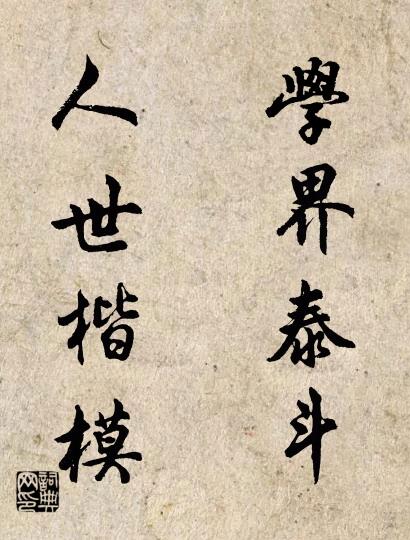 學界泰斗
人世楷模
詞典
网印